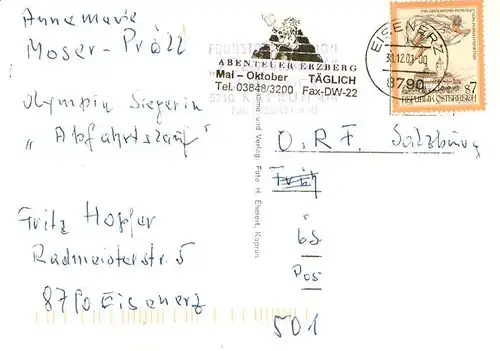 Annemarie
Moser-Pröll
Olympia Siegerin
"Abfahrtslauf"
Fritz Hopfer
Radmeisterstr. 5
8790 Eisenerz
ABENTEUER ERZBERG
Mai - Oktober TÄGLICH
Tel. 03848/3200 Fax-DW-22
5710 KAPRUN
und Verlag: Foto H. Ehmert, Kaprun
EISENERZ
31.12.01-00
8790
REPUBLIK ÖSTERREICH
S7
O.R.F. Salzburg
501